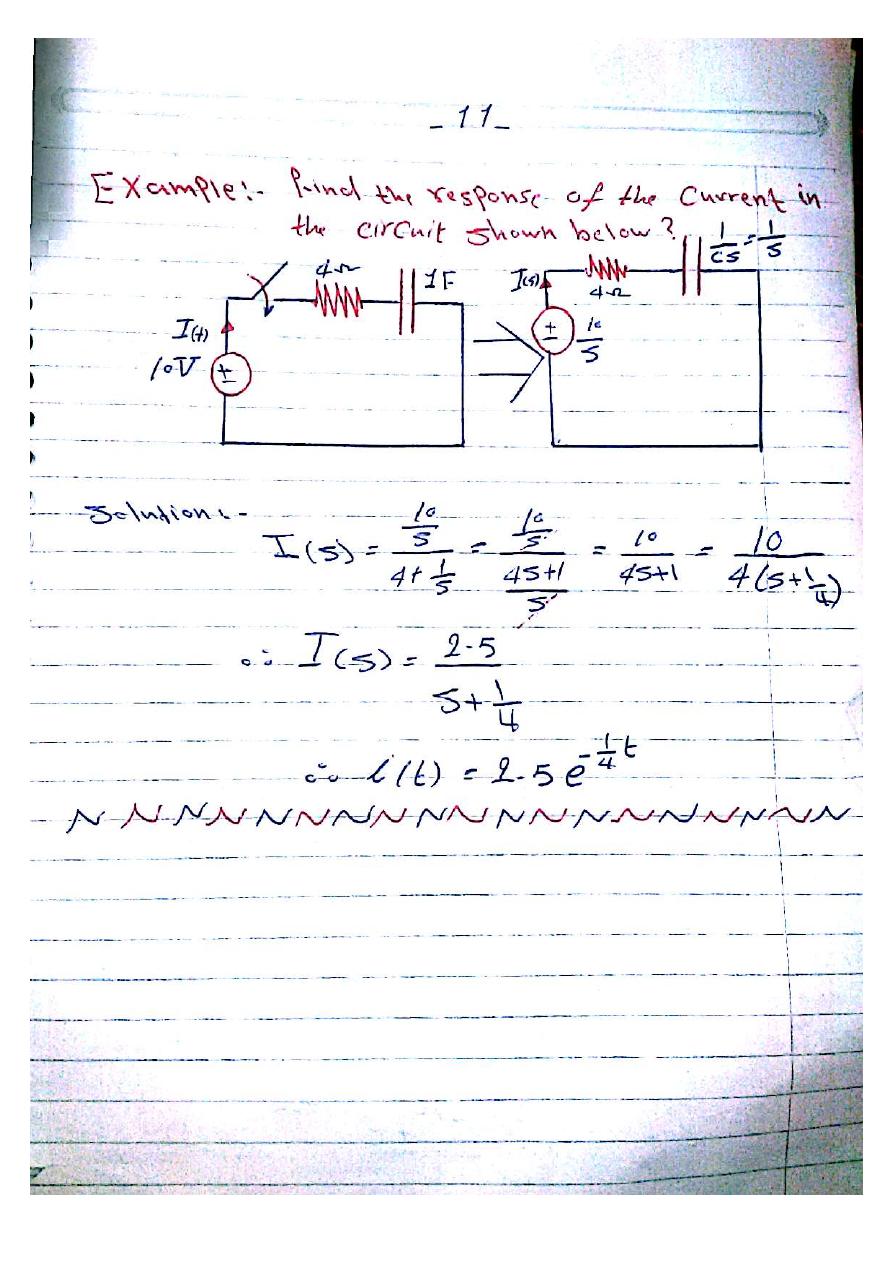 - 11 -
Example:- Find the response of the Current in
the circuit shown below?
1/CS = 1/S
4Ω 1F I(s) 4Ω
I(t) 10V ± ± 10/S
Solution:-
I(S) = (10/S)/(4+1/S) = (10/S)/((4S+1)/S) = 10/(4S+1) = 10/(4(S+1/4))
∴ I(S) = 2.5/(S+1/4)
∴ i(t) = 2.5 e^(-1/4 t)